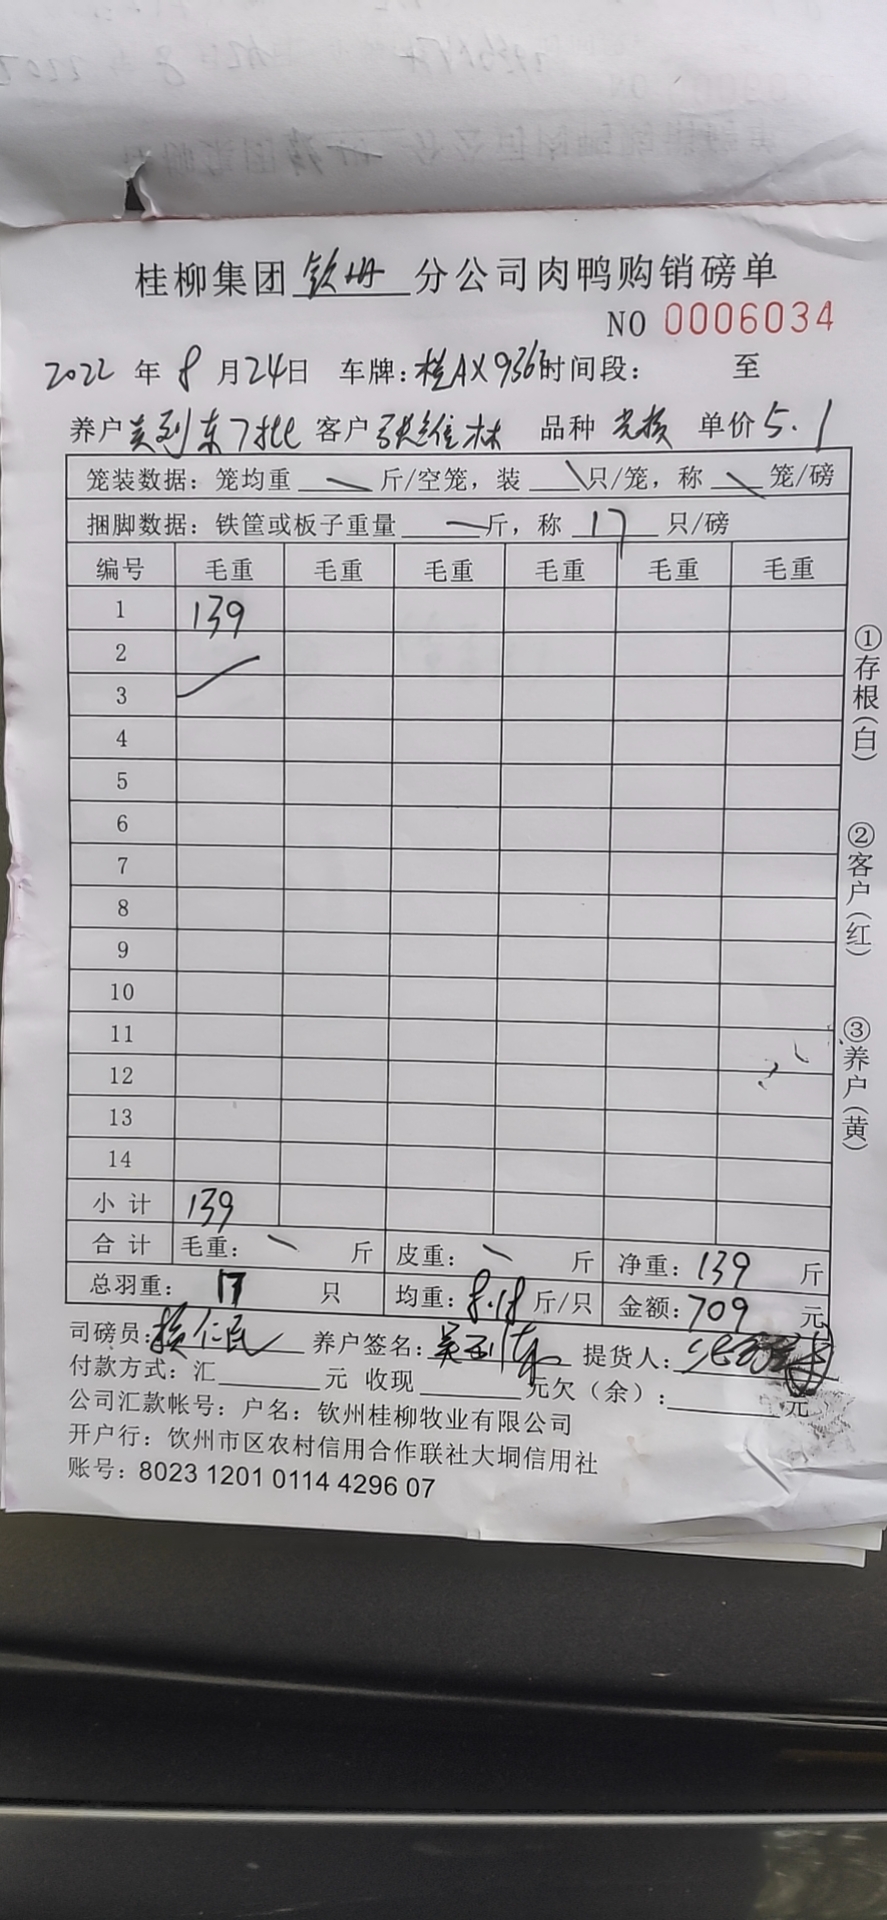 桂柳集团 钦州 分公司肉鸭购销磅单
NO 0006034
2022 年 8 月 24 日 车牌: 桂AX936 时间段: 至
养户 吴列东7批 客户 张维林 品种 单价 5.1
笼装数据: 笼均重 斤/空笼, 装 \ 只/笼, 称 \ 笼/磅
捆脚数据: 铁筐或板子重量 一 斤, 称 17 只/磅
编号 毛重 毛重 毛重 毛重 毛重 毛重
1 139
2
3
4
5
6
7
8
9
10
11
12
13
14
小 计 139
合 计 毛重: \ 斤 皮重: \ 斤 净重: 139 斤
总羽重: 17 只 均重: 8.18 斤/只 金额: 709 元
司磅员: 仁民 养户签名: 吴列东 提货人:
付款方式: 汇 元 收现 元欠（余）: 元
公司汇款帐号: 户名: 钦州桂柳牧业有限公司
开户行: 钦州市区农村信用合作联社大垌信用社
账号: 8023 1201 0114 4296 07
①存根（白）
②客户（红）
③养户（黄）